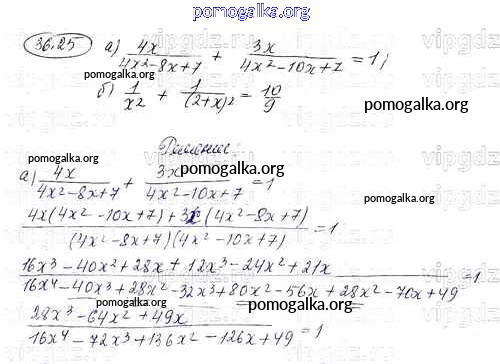 pomogalka.org
36.25 а) 4x/(4x²-8x+7) + 3x/(4x²-10x+7) = 1;
pomogalka.org
б) 1/x² + 1/(2+x)² = 10/9
pomogalka.org
Решение:
pomogalka.org pomogalka.org
а) 4x/(4x²-8x+7) + 3x/(4x²-10x+7) = 1
(4x(4x²-10x+7)+3x(4x²-8x+7))/((4x²-8x+7)(4x²-10x+7)) = 1
(16x³-40x²+28x+12x³-24x²+21x)/(16x⁴-40x³+28x²-32x³+80x²-56x+28x²-70x+49) = 1
pomogalka.org pomogalka.org
(28x³-64x²+49x)/(16x⁴-72x³+136x²-126x+49) = 1
vipgdz